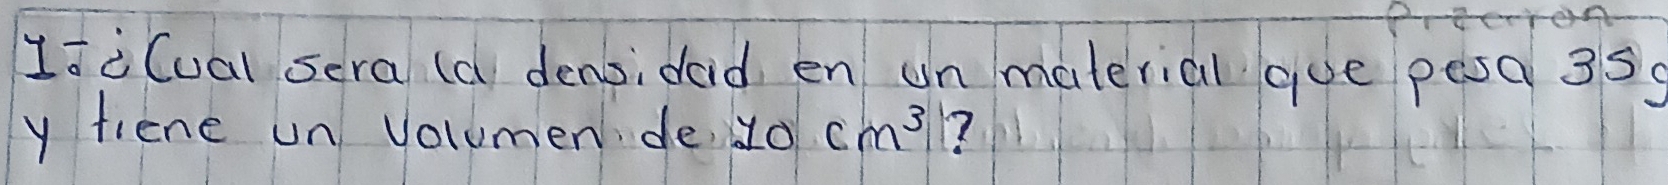 1.- ¿Cual sera la densidad en un material que pesa 35g
y tiene un volumen de 10 cm³?